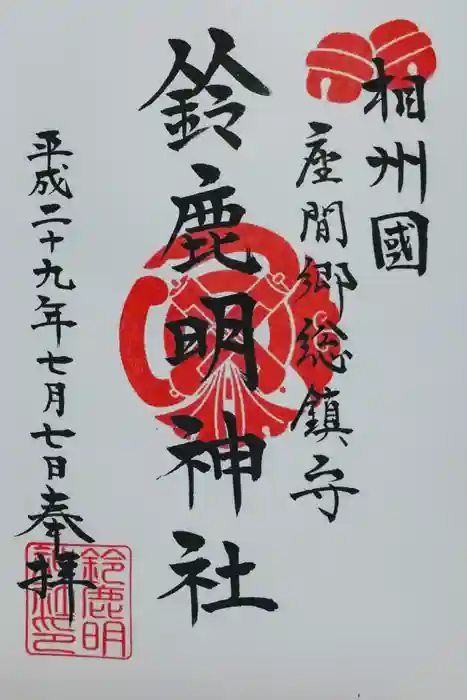 相州國
座間郷総鎮守
鈴鹿明神社
平成二十九年七月七日奉拝
鈴鹿明
神社印